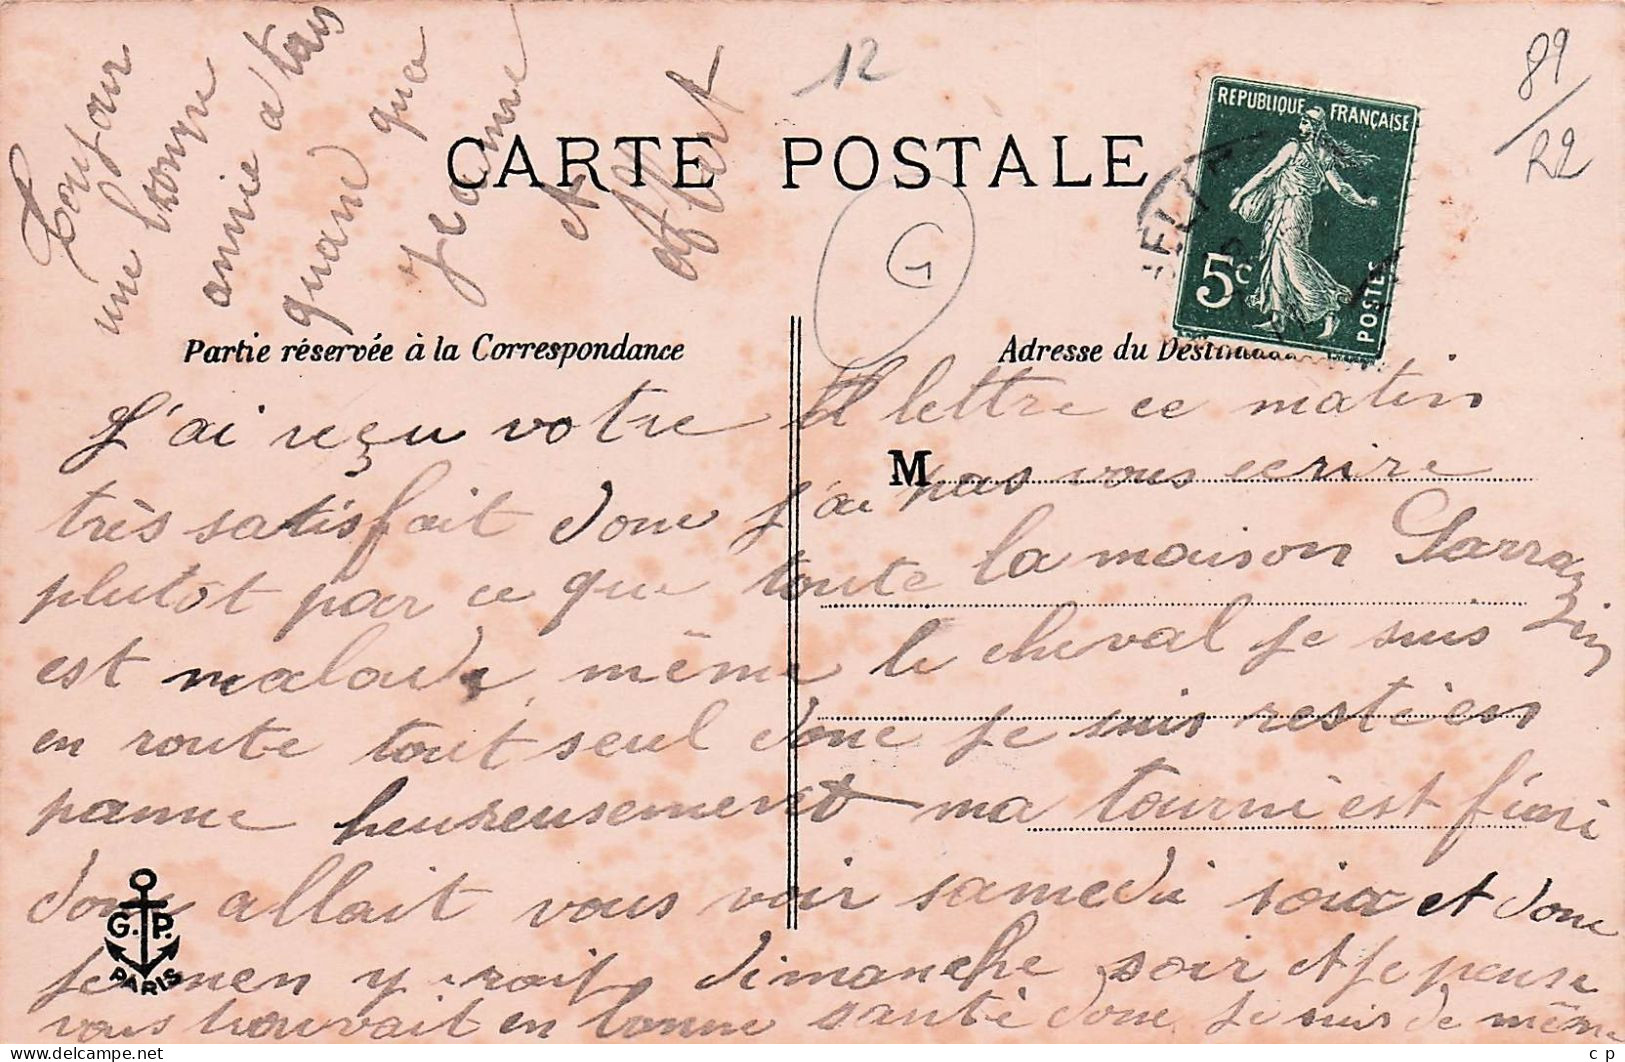 Toujour
une bonne
annie a tous
quand que
Jeanne
et
Albert
12
89/R2
CARTE POSTALE
REPUBLIQUE FRANÇAISE
5c
POSTES
G
Partie réservée à la Correspondance
Adresse du
J'ai reçu votre lettre ce matin
M
très satisfait donc j'ai pas vous ecrire
plutôt par ce que toute la maison Sarrazin
est malade même le cheval je suis
en route tout seul donc je suis resté en
panne heureusement ma tourné est fini
donc allait vous voir samedi soir et donc
je men y rait dimanche soir et je pense
vous trouvait en bonne santé donc je suis de même
G.P.
PARIS